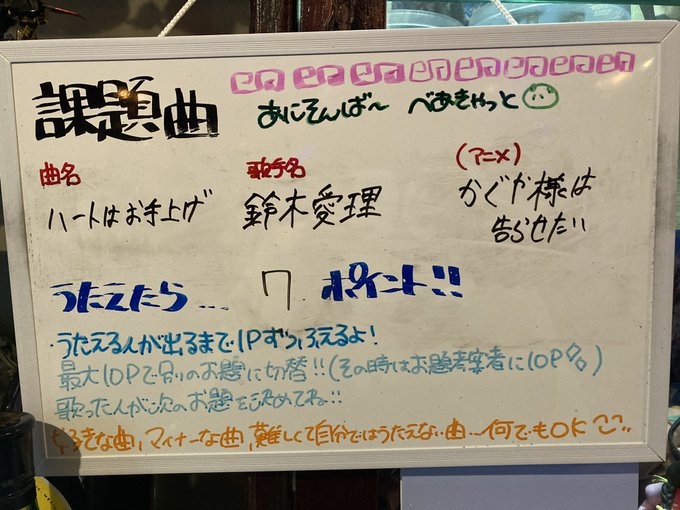 課題曲
あにそんばー べあきゃっと
曲名 歌手名 (アニメ)
ハートはお手上げ 鈴木愛理 かぐや様は
告らせたい
うたえたら… 7 ポイント!!
・うたえる人が出るまで1Pずつふえるよ!
最大10Pで別のお題に切替!!(その時はお題考案者に10P)
歌った人が次のお題を決めてね!!
好きな曲、マイナーな曲、難しくて自分ではうたえない曲…何でもOK